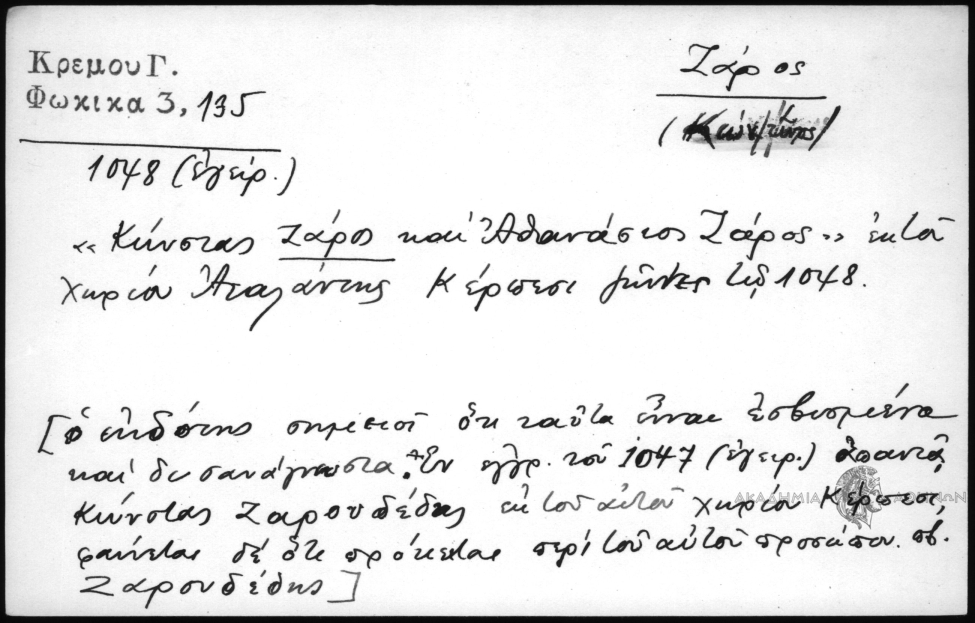 Κρεμου Γ.
Φωκικα 3, 135
Ζάρος
1048 (ἐγείρ.)
« Κώνστας Ζάρος καὶ Ἀθανάσιος Ζάρος » ἐκ τοῦ
χωρίου Ἀταλάντης Κέρπεσι 1048.
[ὁ ἐκδότης σημειοῖ ὅτι ταῦτα εἶναι ἐσβυσμένα
καὶ δυσανάγνωστα. Ἐν ἐγγρ. τοῦ 1047 (ἐγειρ.) ἀπαντᾷ
Κώνστας Ζαρουδέδης ἐκ τοῦ αὐτοῦ χωρίου Κέρπεσι,
φαίνεται δὲ ὅτι πρόκειται περὶ τοῦ αὐτοῦ προσώπου.
Ζαρουδέδης]
ΑΚΑΔΗΜΙΑ ΑΘΗΝΩΝ